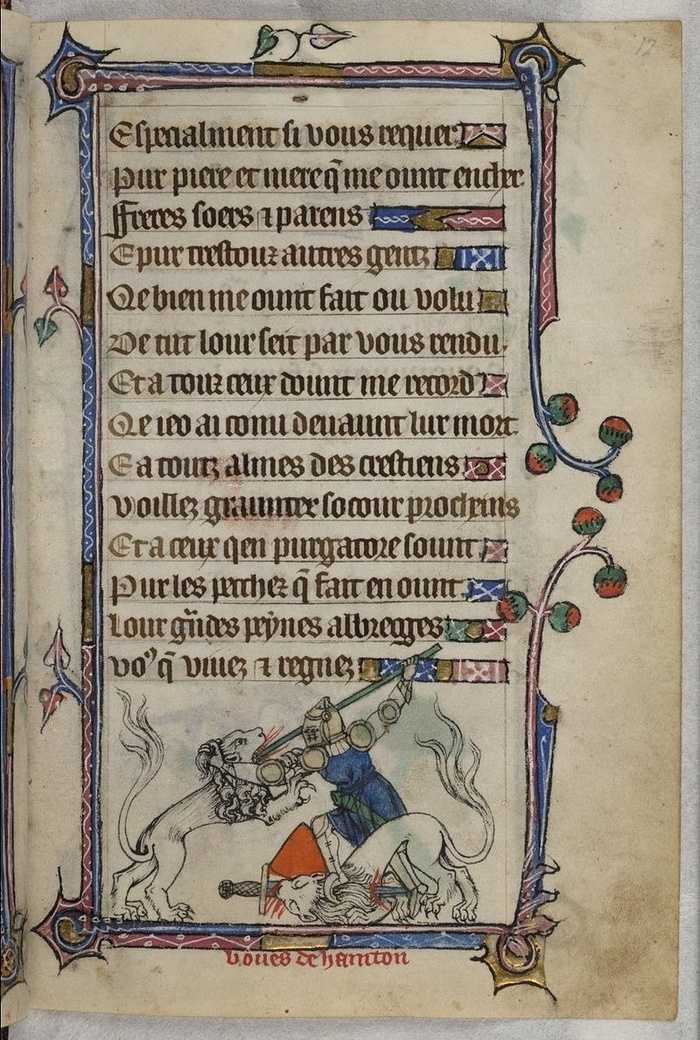 Especialment si vous requer
Pur piere et miere q̄ me ount encher
Freres soers ⁊ parens
E pur trestouz autres gentz
Qe bien me ount fait ou volu
De tut lour seit par vous rendu
Et a touz ceux dount me record
Qe ieo ai conu deuaunt lur mort
E a toutz almes des crestiens
Voillez graunter socour procheins
Et a ceux qen purgatore sount
Pur les pecchez q̄ fait en ount
Lour g̃ndes peynes albregges
Voꝰ q̄ viuez ⁊ regnez
boues de hamton